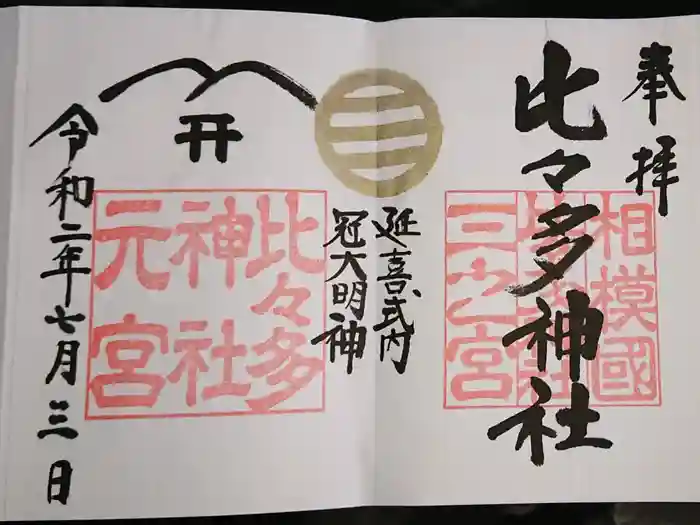 奉拝
比々多神社
相模國
比々多神社
三之宮
三
延喜式内
冠大明神
比々多
神社
元宮
令和二年七月三日